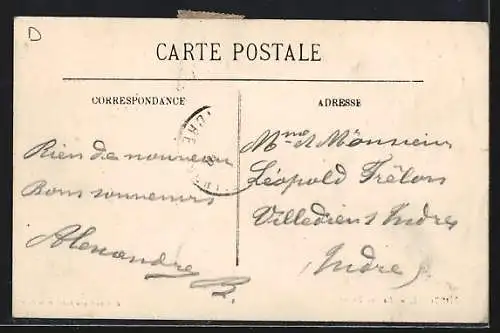 D
CARTE POSTALE
CORRESPONDANCE
ADRESSE
Rien de nouveau
Bons souvenirs
Alexandre B.
Mme et Monsieur
Léopold Trélon
Villediers Indre
(Indre)